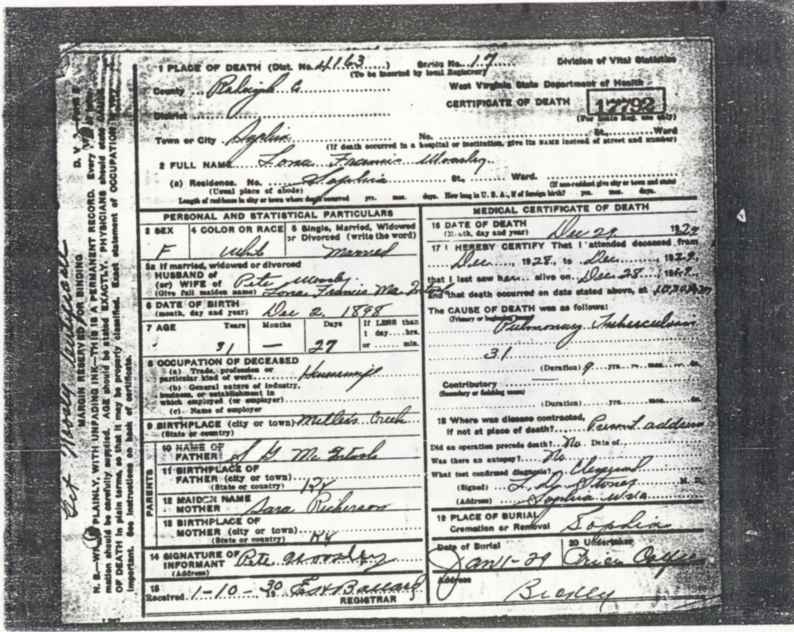 1 PLACE OF DEATH (Dist. No. 4163) Series No. 17 Division of Vital Statistics
(To be inserted by local Registrar)
County Raleigh Co West Virginia State Department of Health
District CERTIFICATE OF DEATH 17792
(For State Reg. use only)
Town or City Sophia No. St., Ward
(If death occurred in a hospital or institution, give its NAME instead of street and number)
2 FULL NAME Lona Francis
(a) Residence. No. Sophia St., Ward.
(Usual place of abode) (If non-resident give city or town and state)
Length of residence in city or town where death occurred yrs. mos. days. How long in U. S. A., if of foreign birth? yrs. mos. days.
PERSONAL AND STATISTICAL PARTICULARS
3 SEX 4 COLOR OR RACE 5 Single, Married, Widowed
or Divorced (write the word)
F White Married
5a If married, widowed or divorced
HUSBAND of
(or) WIFE of Pete
(Give full maiden name) Lona Francis
6 DATE OF BIRTH
(month, day and year) Dec 2, 1898
7 AGE Years Months Days If LESS than
1 day....hrs.
31 — 27 or .... min.
8 OCCUPATION OF DECEASED
(a) Trade, profession or
particular kind of work
(b) General nature of industry,
business, or establishment in
which employed (or employer)
(c) Name of employer
9 BIRTHPLACE (city or town) Millers Creek
(State or country)
PARENTS
10 NAME OF
FATHER
11 BIRTHPLACE OF
FATHER (city or town)
(State or country) Ky
12 MAIDEN NAME
MOTHER Sara
13 BIRTHPLACE OF
MOTHER (city or town)
(State or country) Ky
14 SIGNATURE OF
INFORMANT Pete
(Address)
15
Received 1-10-30
REGISTRAR
MEDICAL CERTIFICATE OF DEATH
16 DATE OF DEATH
(Month, day and year) Dec 29 1929
17 I HEREBY CERTIFY That I attended deceased from
Dec, 1928, to Dec, 1929,
that I last saw her alive on Dec 28,
and that death occurred on date stated above, at
The CAUSE OF DEATH was as follows:
Pulmonary Tuberculosis
31
(Duration) yrs. mos. ds.
Contributory
(Secondary or finishing cause)
(Duration) yrs. mos. ds.
18 Where was disease contracted,
if not at place of death? address
Did an operation precede death? No Date of
Was there an autopsy? No
What test confirmed diagnosis?
(Signed) M. D.
(Address) Sophia W Va
19 PLACE OF BURIAL
Cremation or Removal Sophia
Date of Burial 20 Undertaker
Jan 1-29
Address
MARGIN RESERVED FOR BINDING
N. B.—WRITE PLAINLY, WITH UNFADING INK—THIS IS A PERMANENT RECORD. Every
mation should be carefully supplied. AGE should be stated EXACTLY. PHYSICIANS should state CAUSE
OF DEATH in plain terms, so that it may be properly classified. Exact statement of OCCUPATION is very
important. See instructions on back of certificate.